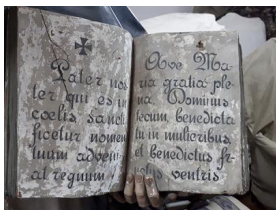 Pater nos
ter qui es in
coelis sancti
ficetur nomen
tuum adveni
at regnum
Ave Ma
ria gratia ple
na, Dominus
tecum, benedicta
tu in mulieribus
et benedictus fr
ventris